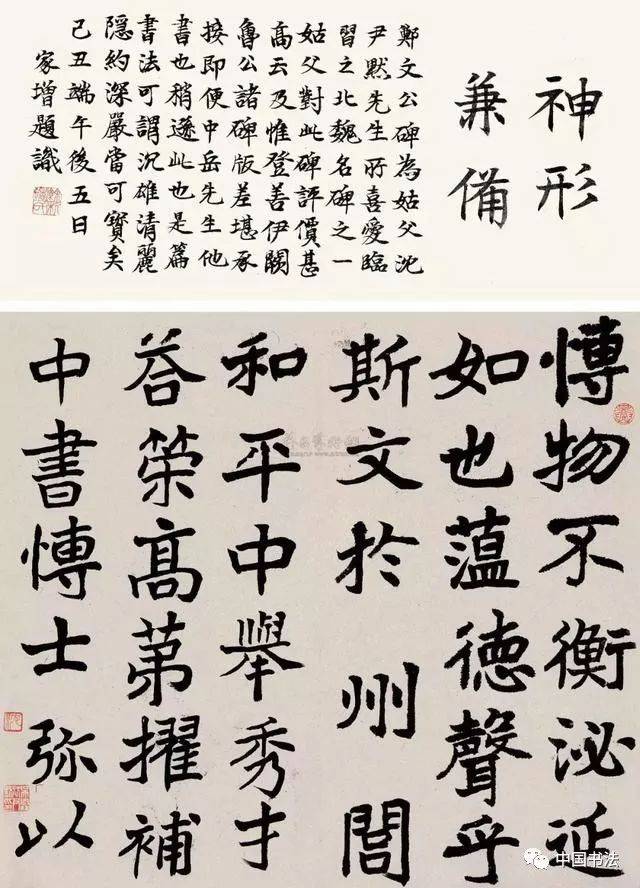 神形
兼備
鄭文公碑為姑父沈
尹默先生所喜愛臨
習之北魏名碑之一
姑父對此碑評價甚
高云及惟登善伊闕
魯公諸碑版差堪承
接即便中岳先生他
書也稍遜此也是篇
書法可謂沉雄清麗
隱約深嚴當可寶矣
己丑端午後五日
家增題識
慱物不衡泌延
如也蕰德聲乎
斯文於州閭
和平中舉秀才
荅策高苐擢補
中書慱士弥以
中国书法